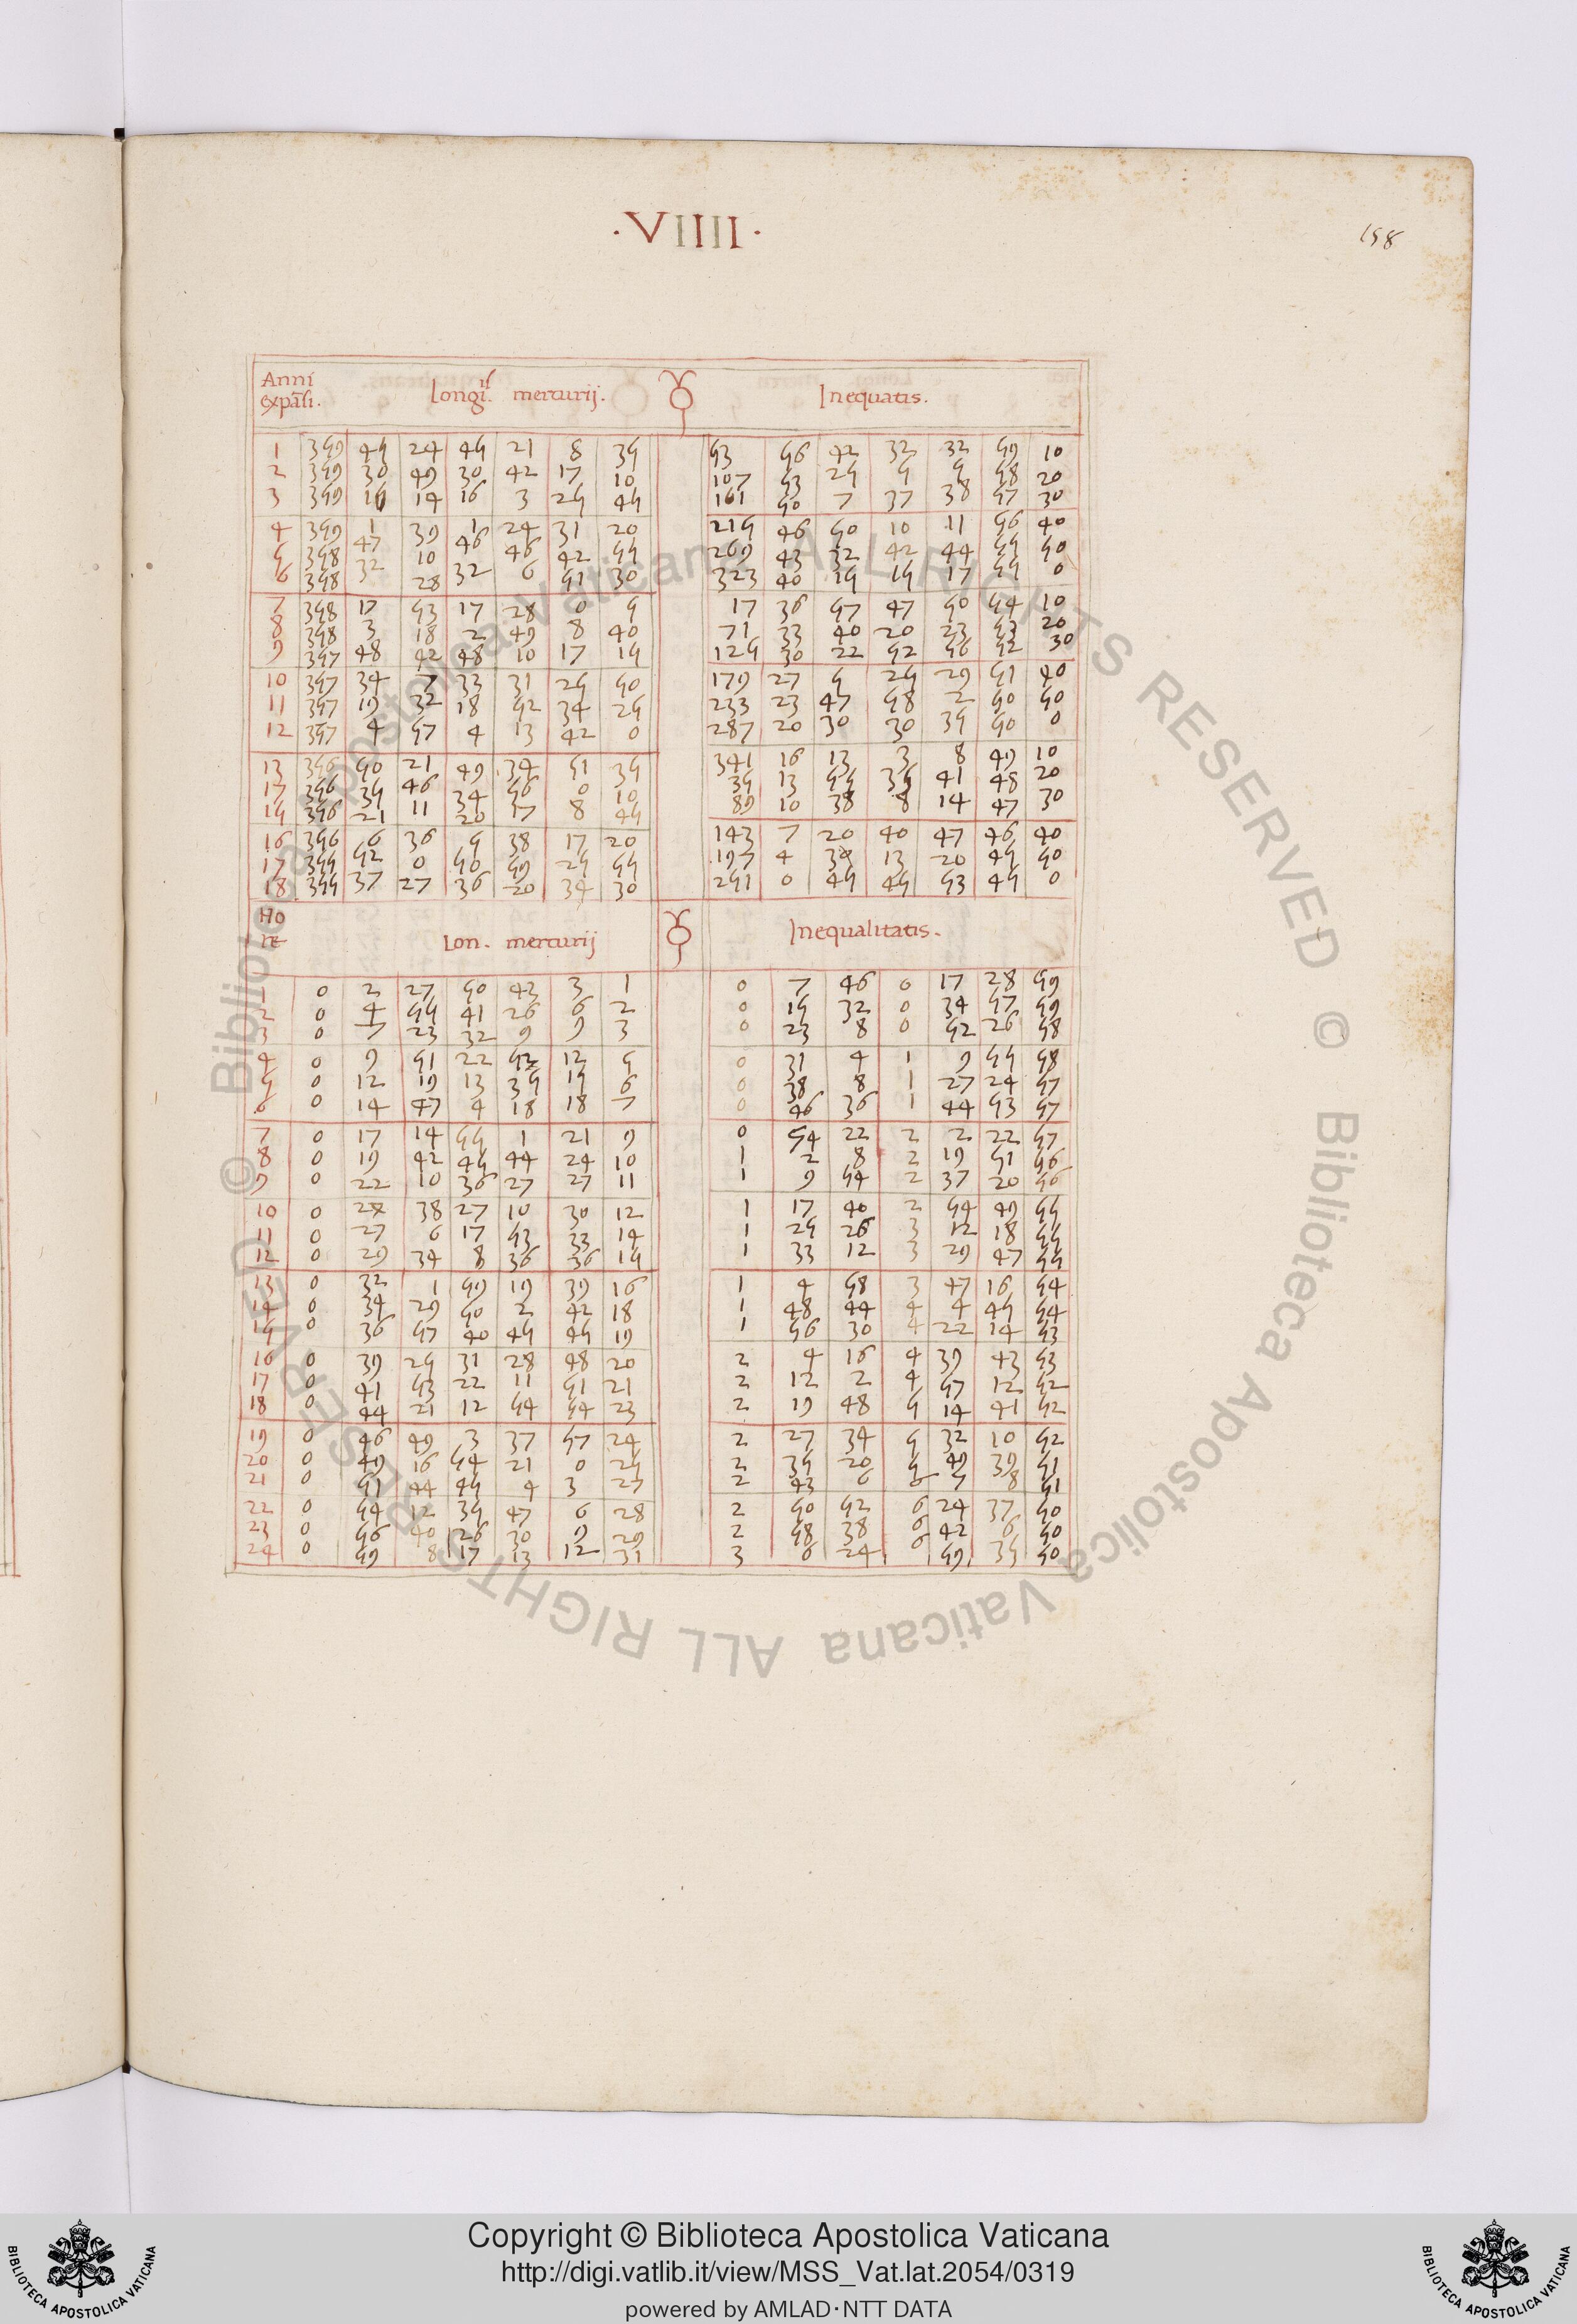 ·VIIII·
158
Anni expãsi. Longil. mercurij. ☿ Inequatis.
1 359 45 24 45 21 8 35 53 56 42 32 32 59 10
2 359 30 49 30 42 17 10 107 53 25 5 5 58 20
3 359 16 14 16 3 25 45 161 50 7 37 38 57 30
4 359 1 39 1 24 31 20 215 46 50 10 11 56 40
5 358 47 10 46 46 42 55 269 43 32 42 44 55 50
6 358 32 28 32 6 51 30 323 40 15 15 17 55 0
7 358 17 53 17 28 0 5 17 36 57 47 50 54 10
8 358 3 18 2 49 8 40 71 33 40 20 23 53 20
9 357 48 42 48 10 17 15 125 30 22 52 56 52 30
10 357 34 7 33 31 25 50 179 27 5 25 29 51 40
11 357 19 32 18 52 34 25 233 23 47 58 2 50 50
12 357 4 57 4 13 42 0 287 20 30 30 35 50 0
13 356 50 21 49 34 51 35 341 16 13 3 8 49 10
17 356 35 46 34 56 0 10 35 13 55 35 41 48 20
15 356 21 11 20 17 8 45 89 10 38 8 14 47 30
16 356 6 36 5 38 17 20 143 7 20 40 47 46 40
17 355 52 0 50 59 25 55 197 4 13 20 45 50
18 355 37 27 36 20 34 30 251 0 45 45 53 45 0
Ho re Lon. mercurij ☿ Inequalitatis.
1 0 2 27 50 43 3 1 0 7 46 0 17 28 59
2 0 4 55 41 26 6 2 0 15 32 0 34 57 59
3 0 7 23 32 9 9 3 0 23 8 0 52 26 58
4 0 9 51 22 52 12 5 0 31 4 1 9 55 58
5 0 12 19 13 35 15 6 0 38 8 1 27 24 57
6 0 14 47 4 18 18 7 0 46 36 1 44 53 57
7 0 17 14 55 1 21 9 0 54 22 2 2 22 57
8 0 19 42 45 44 24 10 1 2 8 2 19 51 56
9 0 22 10 36 27 27 11 1 9 54 2 37 20 56
10 0 24 38 27 10 30 12 1 17 40 2 54 49 55
11 0 27 6 17 53 33 14 1 25 26 3 12 18 55
12 0 29 34 8 36 36 15 1 33 12 3 29 47 55
13 0 32 1 59 19 39 16 1 4 58 3 47 16 54
14 0 34 29 50 2 42 18 1 48 44 4 4 45 54
15 0 36 57 40 45 45 19 1 56 30 4 22 14 53
16 0 39 25 31 28 48 20 2 4 16 4 39 43 53
17 0 41 53 22 11 51 21 2 12 2 4 57 12 52
18 0 44 21 12 54 54 23 2 19 48 5 14 41 52
19 0 46 49 3 37 57 24 2 27 34 5 32 10 52
20 0 49 16 54 21 0 25 2 35 20 5 49 39 51
21 0 51 44 45 4 3 27 2 43 6 6 7 8 51
22 0 54 12 35 47 6 28 2 50 52 6 24 37 50
23 0 56 40 26 30 9 29 2 58 38 6 42 6 50
24 0 59 8 17 13 12 31 3 6 24 6 59 35 50
Copyright © Biblioteca Apostolica Vaticana
http://digi.vatlib.it/view/MSS_Vat.lat.2054/0319
powered by AMLAD·NTT DATA
BIBLIOTECA APOSTOLICA VATICANA
BIBLIOTECA APOSTOLICA VATICANA
© Biblioteca Apostolica Vaticana ALL RIGHTS RESERVED © Biblioteca Apostolica Vaticana ALL RIGHTS RESERVED